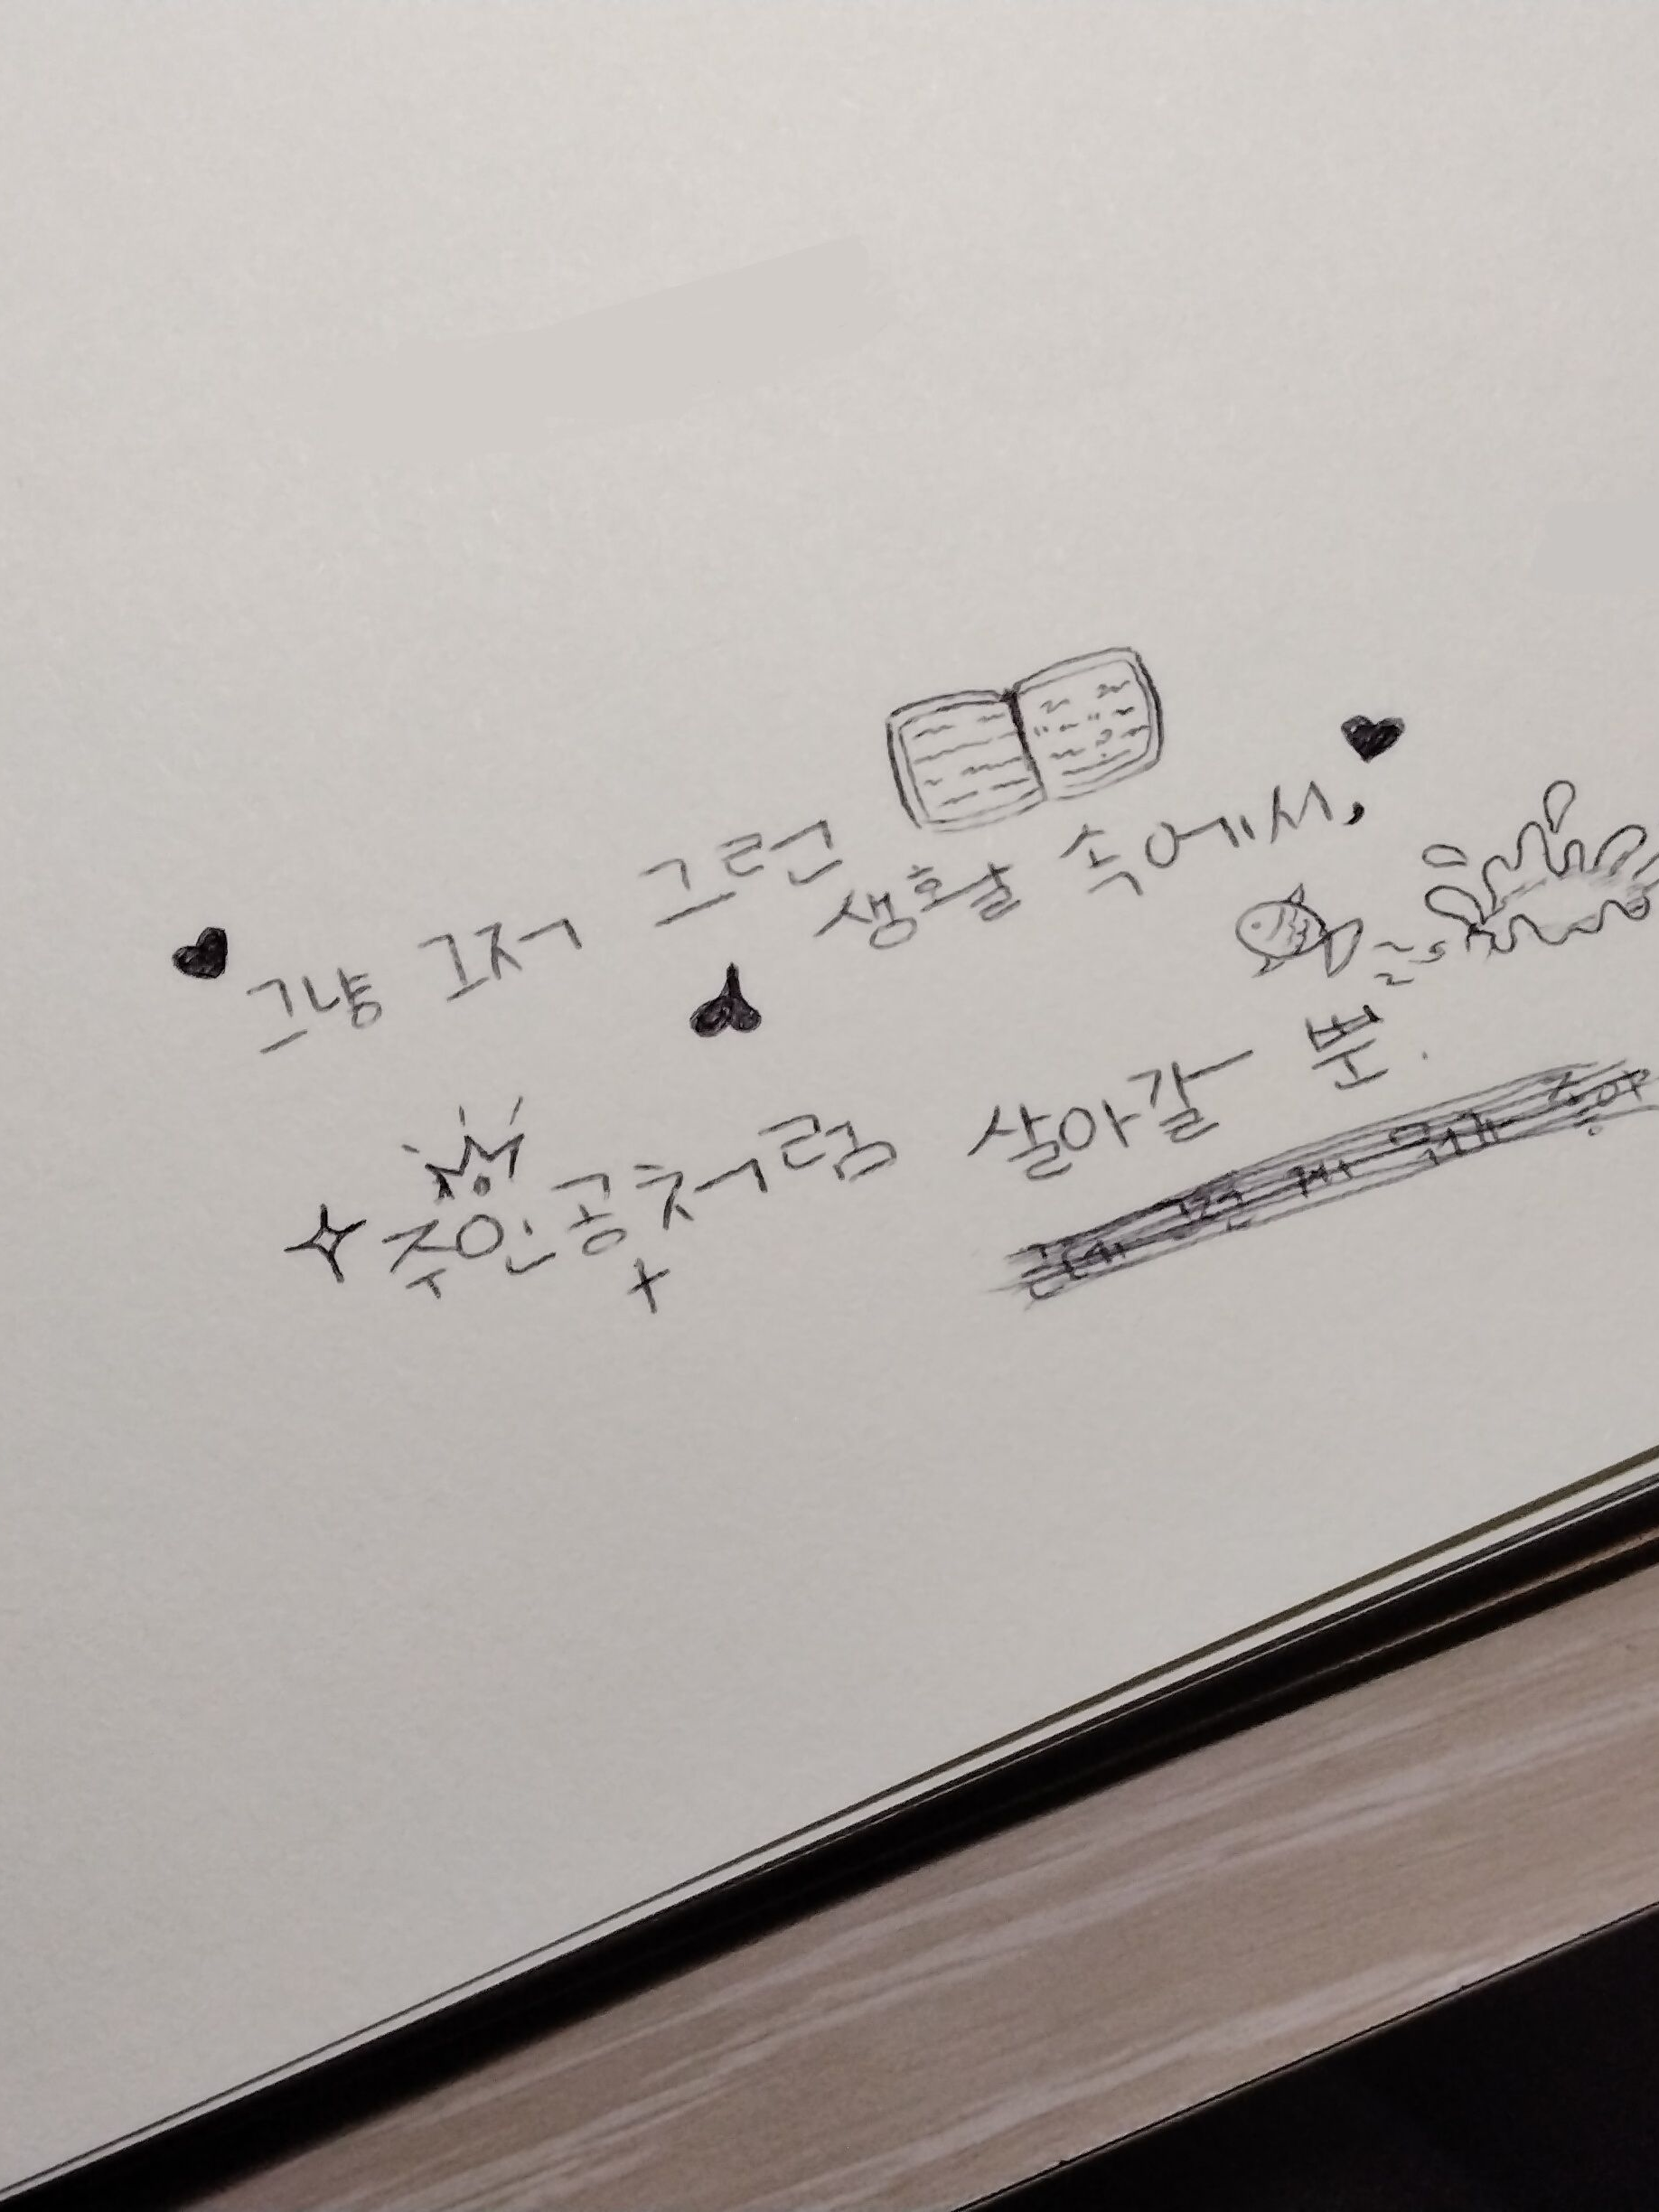 그냥 그저 그런 생활 속에서,
주인공처럼 살아갈 뿐.